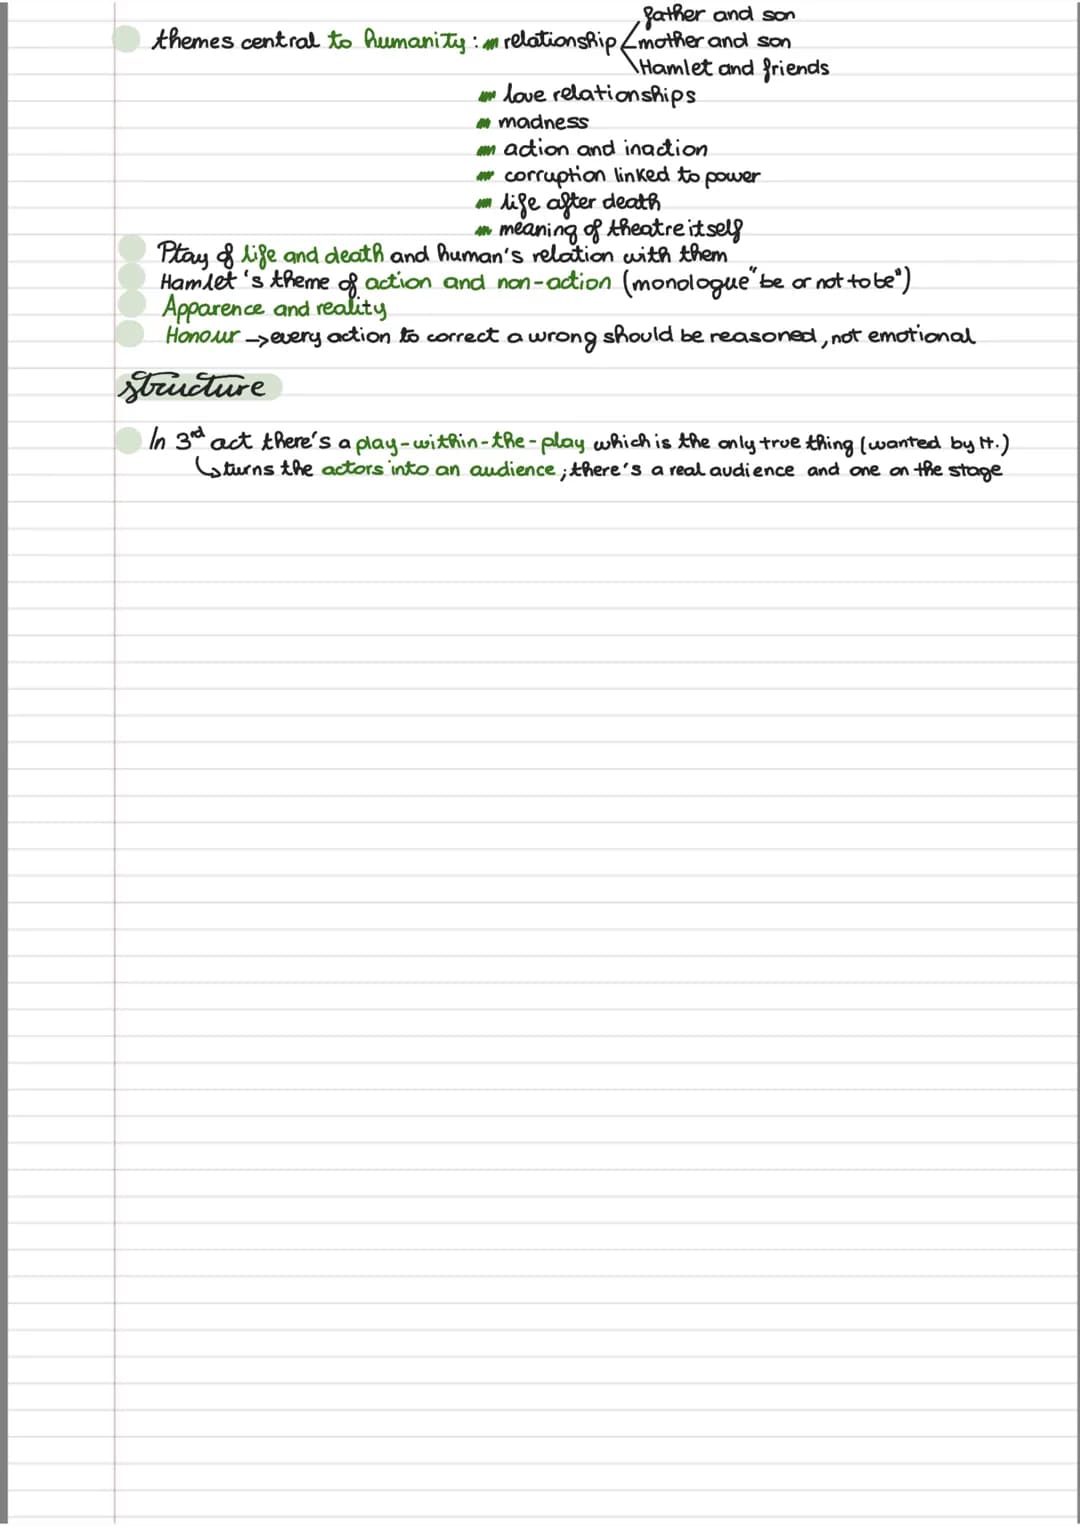 father and son
themes central to humanity: relationship mother and son
Hamlet and friends
love relationships
madness
action and inaction
corruption linked to power
life after death
meaning of theatre itself
Play of life and death and human's relation with them
Hamlet's theme of action and non-action (monologue "be or not to be")
Apparence and reality
Honour → every action to correct a wrong should be reasoned, not emotional
structure
In 3rd act there's a play-within-the-play which is the only true thing (wanted by H.)
↳ turns the actors into an audience; there's a real audience and one on the stage